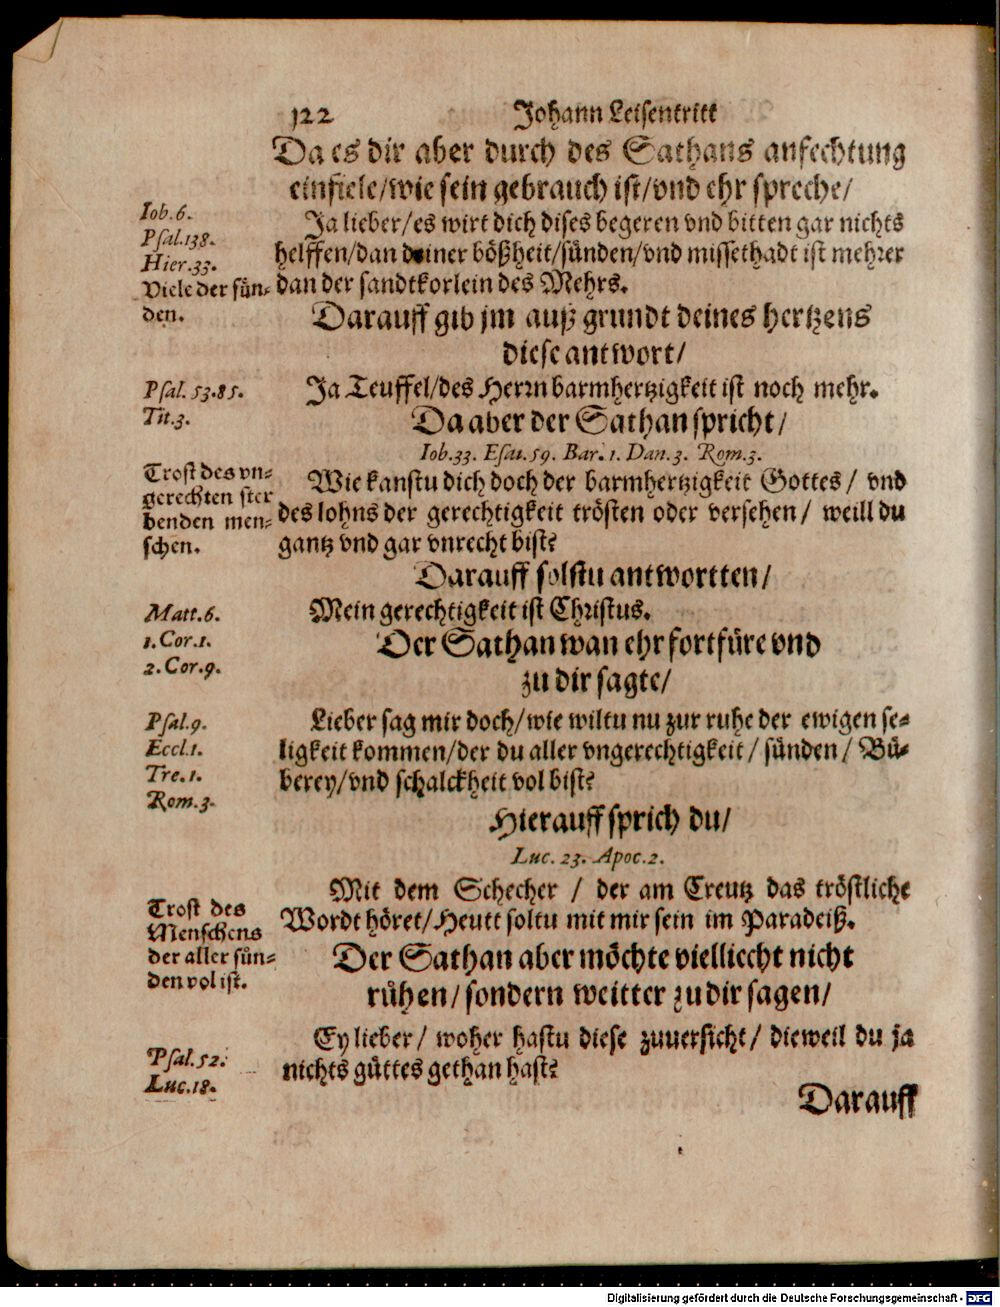 122 Johann Leisentritt
Da es dir aber durch des Sathans anfechtung
einfiele/wie sein gebrauch ist/vnd ehr spreche/
Iob.6.
Psal.138.
Hier.33.
Viele der sün-
den.
Ja lieber/es wirt dich dises begeren vnd bitten gar nichts
helffen/dan deiner bößheit/sünden/vnd missethadt ist mehrer
dan der sandtkorlein des Mehrs.
Darauff gib jm auß grundt deines hertzens
diese antwort/
Psal. 53.85.
Tit.3.
Ja Teuffel/des Herrn barmhertzigkeit ist noch mehr.
Da aber der Sathan spricht/
Iob.33. Esai.59. Bar.1. Dan.3. Rom.3.
Trost des vn-
gerechten ster
benden men-
schen.
Wie kanstu dich doch der barmhertzigkeit Gottes/ vnd
des lohns der gerechtigkeit trösten oder versehen/ weill du
gantz vnd gar vnrecht bist?
Darauff solstu antwortten/
Matt.6.
1.Cor.1.
2.Cor.9.
Mein gerechtigkeit ist Christus.
Der Sathan wan ehr fortfüre vnd
zu dir sagte/
Psal.9.
Eccl.1.
Tre.1.
Rom.3.
Lieber sag mir doch/wie wiltu nu zur ruhe der ewigen se-
ligkeit kommen/der du aller vngerechtigkeit/ sünden/ Bü-
berey/vnd schalckheit vol bist?
Hierauff sprich du/
Luc. 23. Apoc.2.
Trost des
Menschens
der aller sün-
den vol ist.
Mit dem Schecher / der am Creutz das tröstliche
Wordt höret/Heutt soltu mit mir sein im Paradeiß.
Der Sathan aber möchte viellieccht nicht
rühen/sondern weitter zu dir sagen/
Psal.52.
Luc.18.
Ey lieber/ woher hastu diese zuuersicht/ dieweil du ja
nichts güttes gethan hast?
Darauff
Digitalisierung gefördert durch die Deutsche Forschungsgemeinschaft - DFG